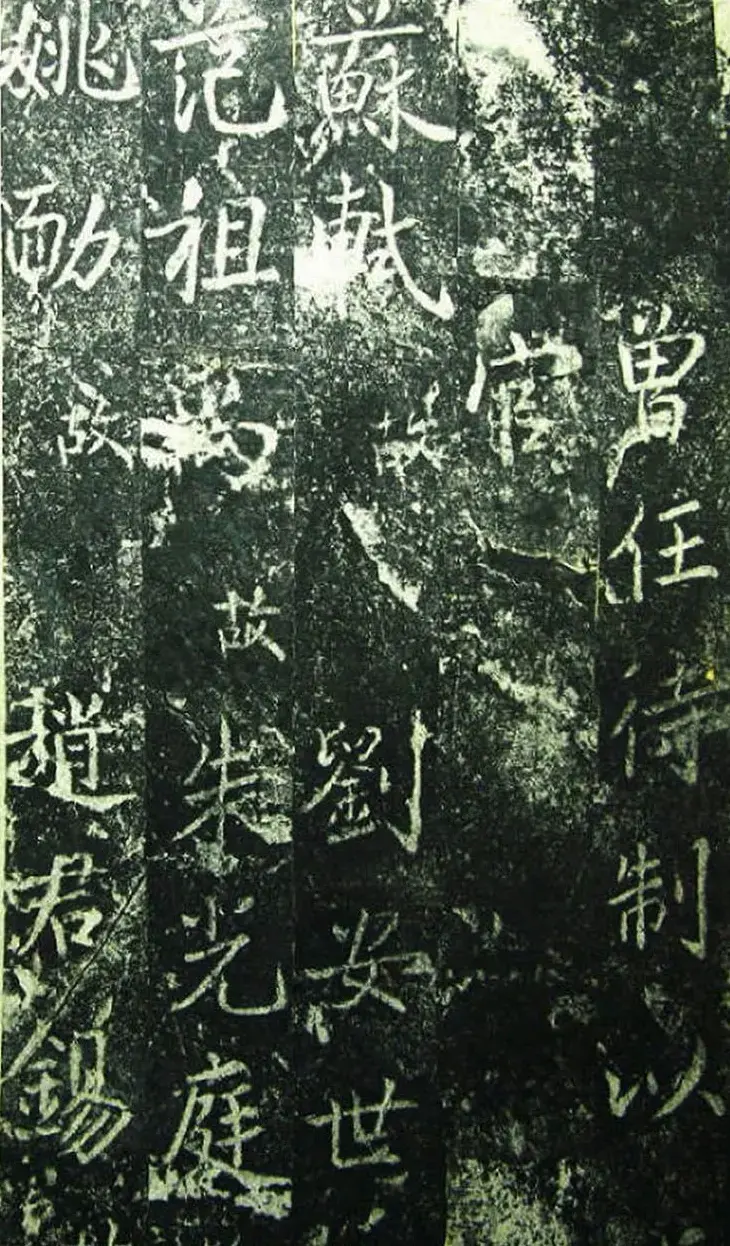 曾任待制以
官
蘇軾故劉安世
范祖禹故朱光庭
姚勔故趙君錫